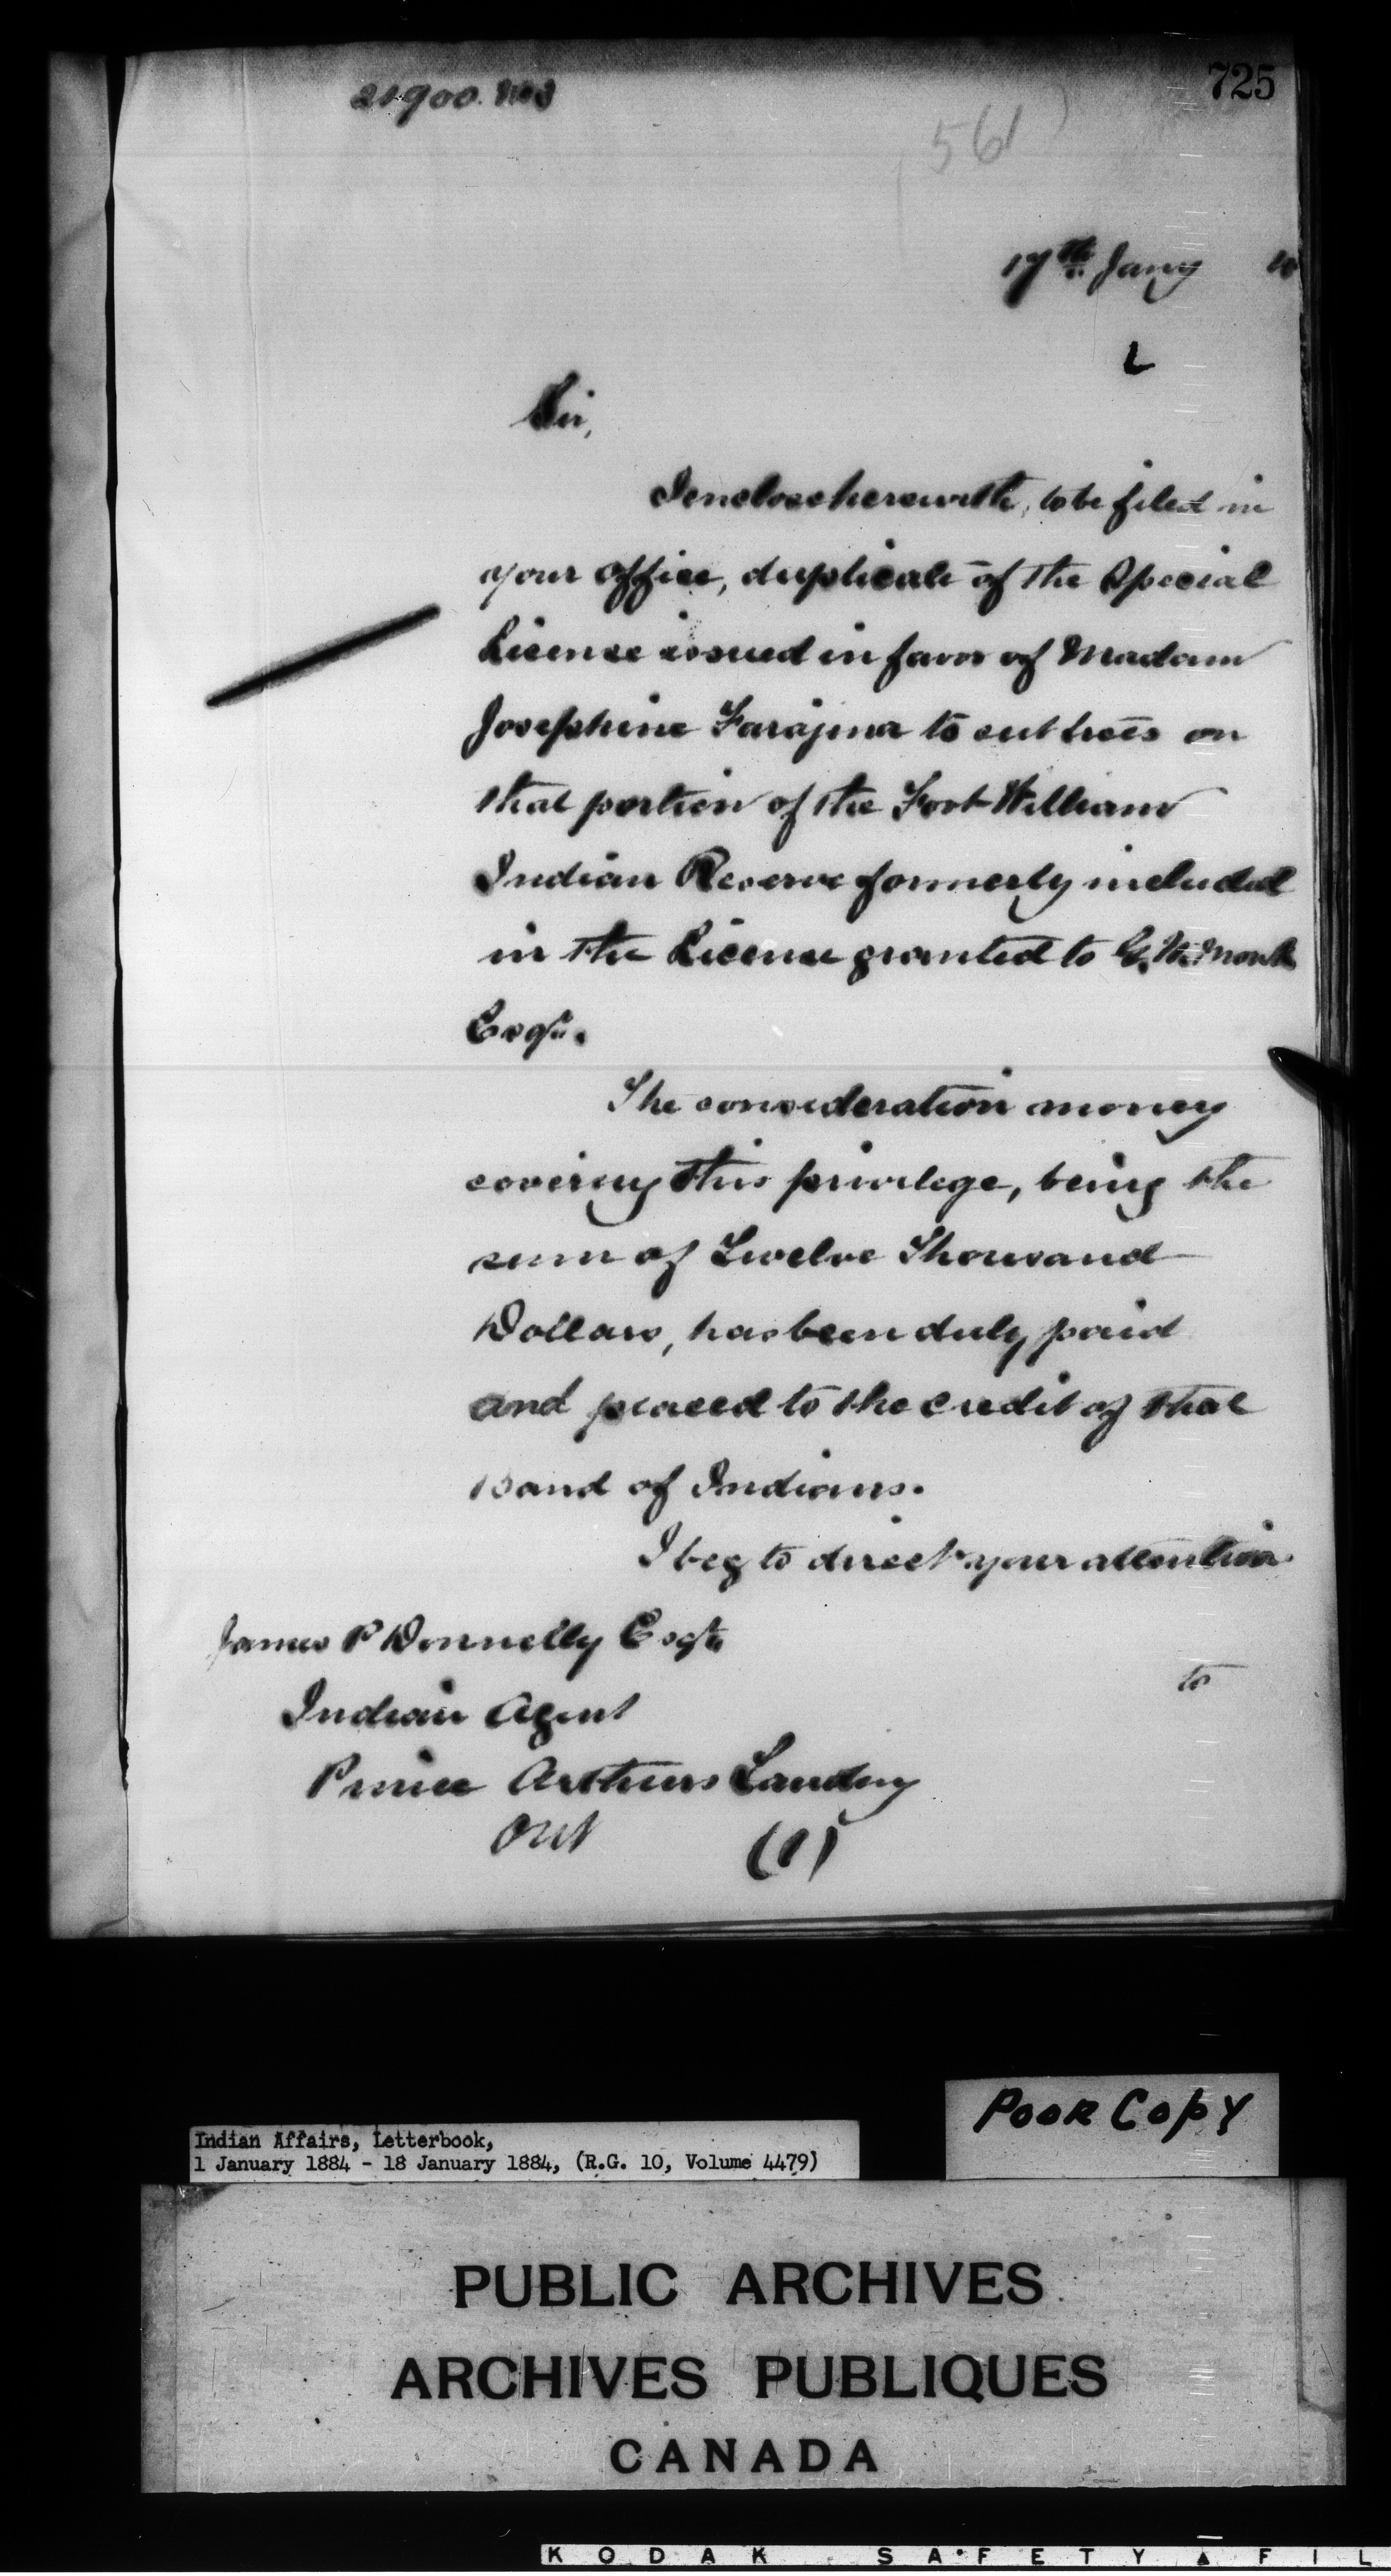 725
561
17th Jany 4
L
Sir,
I enclose herewith, to be filed in
your office, duplicate of the Special
License issued in favor of Madam
Josephine to cut trees on
that portion of the Fort William
Indian Reserve formerly included
in the License granted to G. W. Monk
Esqre.
The consideration money
covering this privilege, being the
sum of Twelve Thousand
Dollars, has been duly paid
and placed to the credit of that
Band of Indians.
I beg to direct your attention
James P Donnelly Esqre
to
Indian Agent
Prince Arthurs Landing
Ont (1)
Poor Copy
Indian Affairs, Letterbook,
1 January 1884 - 18 January 1884, (R.G. 10, Volume 4479)
PUBLIC ARCHIVES
ARCHIVES PUBLIQUES
CANADA
KODAK SAFETY FIL